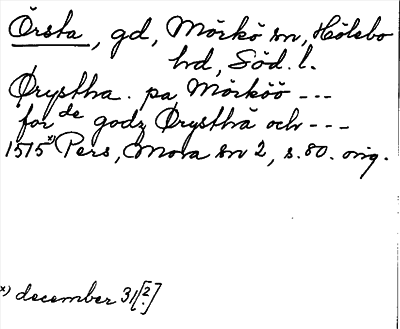 Örsta, gd, Mörkö sn, Hölebo
hd, Söd. l.
Ørystha. pa Mörköö ---
for de godz Ørysthä och ---
1515 x) Pers, Mora sn 2, s. 80. orig.
x) december 31 [?]